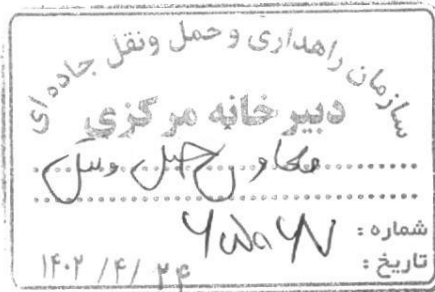 سازمان راهداری و حمل ونقل جاده ای
دبیرخانه مرکزی
معاون حمل ونقل
شماره :
تاریخ : ۱۴۰۲ /۴/ ۲۴